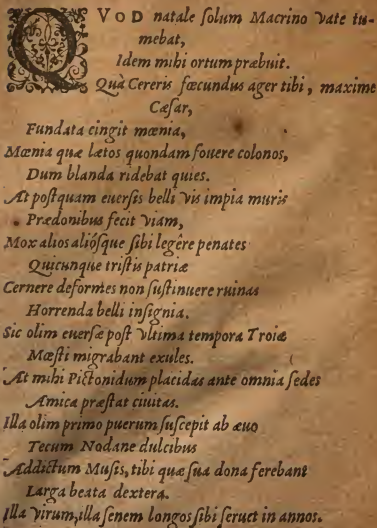 QVOD natale ſolum Macrino vate tu-
mebat,
Idem mihi ortum præbuit.
Quà Cereris fœcundus ager tibi, maxime
Cæſar,
Fundata cingit mœnia,
Mœnia quæ lætos quondam fouere colonos,
Dum blanda ridebat quies.
At poſtquam euerſis belli vis impia muris
Prædonibus fecit viam,
Mox alios aliósque ſibi legêre penates
Quicunque triſtis patriæ
Cernere deformes non ſuſtinuere ruinas
Horrenda belli inſignia.
Sic olim euerſæ poſt vltima tempora Troiæ
Mœſti migrabant exules.
At mihi Pictonidum placidas ante omnia ſedes
Amica præſtat ciuitas.
Illa olim primo puerum ſuſcepit ab æuo
Tecum Nodane dulcibus
Addictum Muſis, tibi quæ ſua dona ferebant
Larga beata dextera.
Illa virum, illa ſenem longos ſibi ſeruet in annos.